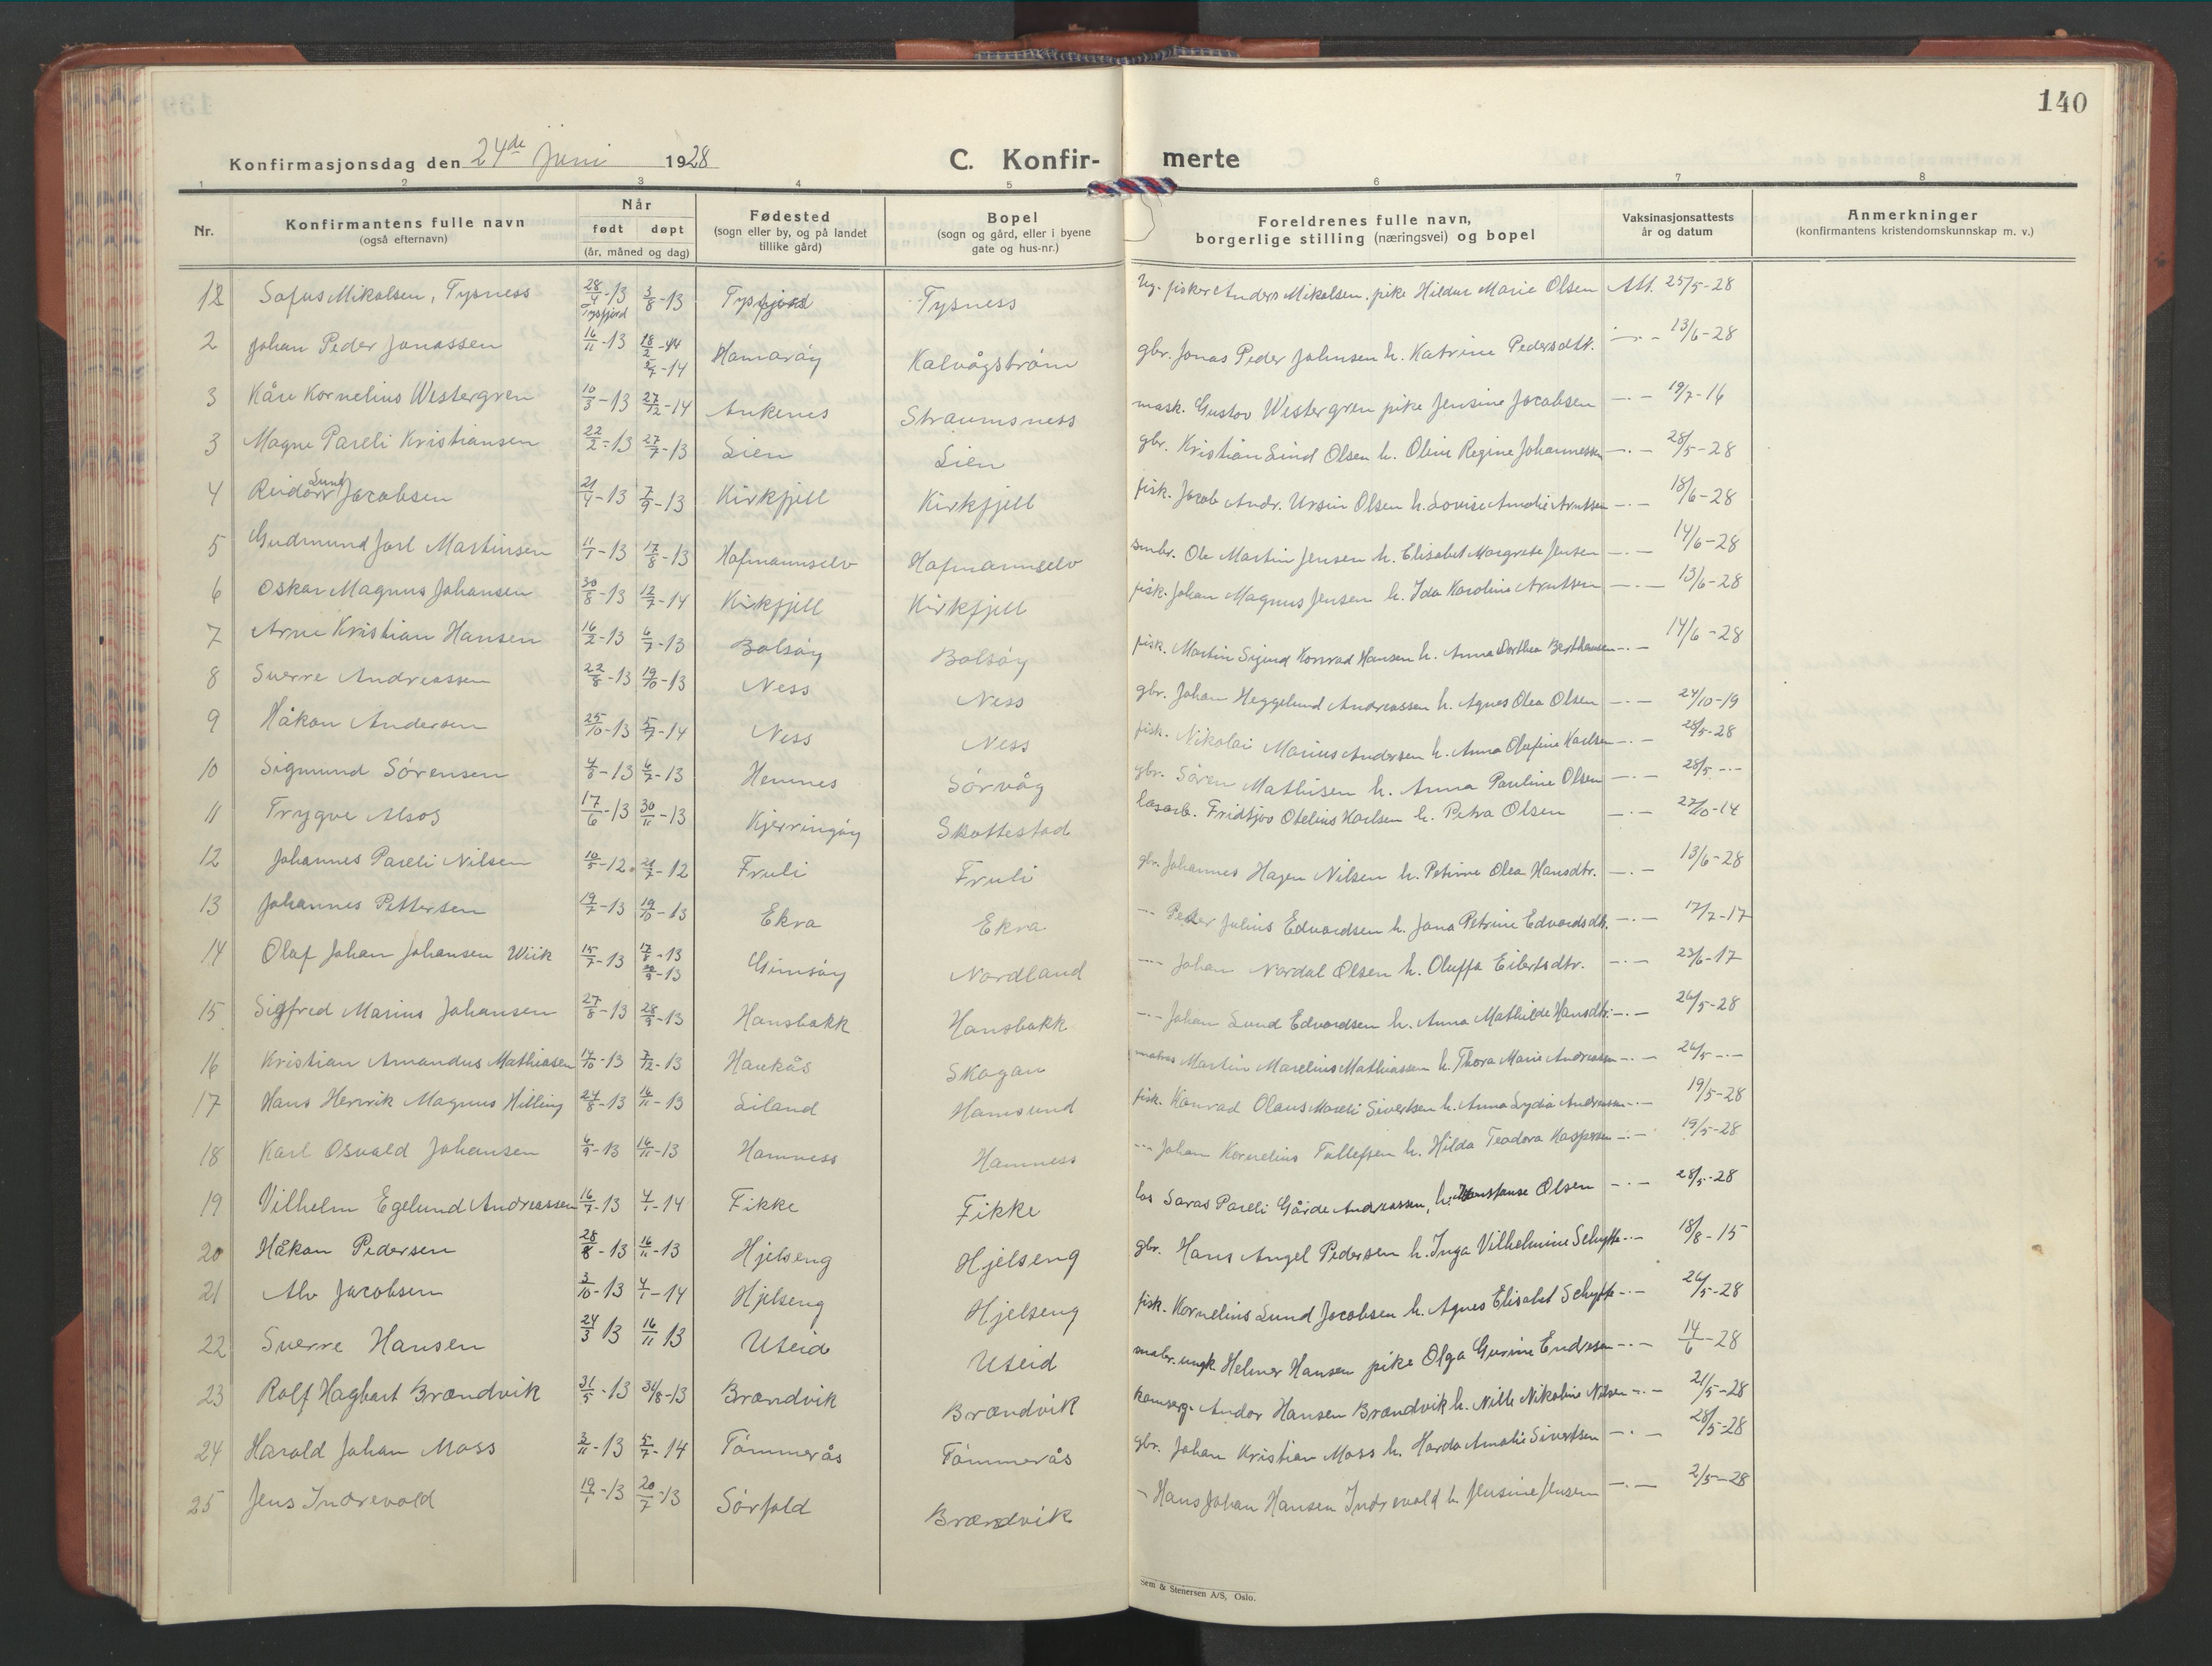 140
Konfirmasjonsdag den 24de juni 1928
C. Konfir- merte
1 2 3 4 5 6 7 8
Nr.
Konfirmantens fulle navn
(også efternavn)
Når
født døpt
(år, måned og dag)
Fødested
(sogn eller by, og på landet
tillike gård)
Bopel
(sogn og gård, eller i byene
gate og hus-nr.)
Foreldrenes fulle navn,
borgerlige stilling (næringsvei) og bopel
Vaksinasjonsattests
år og datum
Anmerkninger
(konfirmantens kristendomskunnskap m. v.)
12 Sofus Mikalsen, Tysness 28/4-13 Tysfjord 3/8-13 Tysfjord Tysness fisker Anders Mikalsen. pike Hildur Marie Olsen Att. 25/5-28
2 Johan Peder Jonassen 16/11-13 18/2-14 Hamarøy Kalvågstrøm gbr. Jonas Peder Johnsen h. Katrine Pedersdtr. -"- 13/6-28
3 Kåre Kornelius Westergren 10/3-13 27/12-14 Ankenes Straumsness mask. Gustav Westergren pike Jensine Jacobsen -"- 19/7-16
3 Magne Pareli Kristiansen 22/2-13 27/7-13 Lien Lien gbr. Kristian Lind Olsen h. Oline Regine Johannessen -"- 28/5-28
4 Reidar Lund Jacobsen 21/4-13 7/9-13 Kirkfjell Kirkfjell fisk. Jacob Andr. Ursin Olsen h. Lovise Amalie Arntsen -"- 18/6-28
5 Gudmund Jarl Martinsen 11/1-13 17/8-13 Hofmannselv Hofmannselv smbr. Ole Martin Jensen h. Elisabet Margrete Jensen -"- 14/6-28
6 Oskar Magnus Johansen 30/8-13 12/7-14 Kirkfjell Kirkfjell fisk. Johan Magnus Jensen h. Ida Karoline Arntsen -"- 13/6-28
7 Arne Kristian Hansen 16/2-13 6/7-13 Bolsøy Bolsøy fisk. Martin Sigurd Konrad Hansen h. Anna Dorthea Berthensen -"- 14/6-28
8 Sverre Andreassen 22/8-13 19/10-13 Ness Ness gbr. Johan Heggelund Andreassen h. Agnes Olea Olsen -"- 24/10-19
9 Håkon Andersen 25/10-13 5/7-14 Ness Ness fisk. Nikolai Marius Andersen h. Anna Olufine Karlsen -"- 28/5-28
10 Sigmund Sørensen 4/6-13 6/7-13 Hemnes Sørvåg gbr. Søren Mathisen h. Anna Pauline Olsen -"- 28/5 -"-
11 Trygve Alsos 17/6-13 30/11-13 Kjerringøy Skottestad løsarb. Fridtjov Otelius Karlsen h. Petra Olsen -"- 27/10-14
12 Johannes Pareli Nilsen 10/5-12 21/7-12 Fruli Fruli gbr. Johannes Hagen Nilsen h. Petrine Olea Hansdtr. -"- 13/6-28
13 Johannes Pettersen 19/7-13 19/10-13 Ekra Ekra -"- Peder Julius Edvardsen h. Jana Petrine Edvardsdtr. -"- 17/7-17
14 Olaf Johan Johansen Wiik 15/7-13 17/8-13 Gimsøy Nordland -"- Johan Nordal Olsen h. Oluffa Eilertsdtr. -"- 23/6-17
15 Sigfred Marius Johansen 27/8-13 28/9-13 Hansbakk Hansbakk -"- Johan Lund Edvardsen h. Anna Mathilde Hansdtr. -"- 26/5-28
16 Kristian Amandus Mathiasen 14/10-13 7/12-13 Haukås Skogan Martin Marelius Mathiassen h. Thora Marie Andreassen -"- 26/5 -"-
17 Hans Henrik Magnus Hilling 24/8-13 16/11-13 Liland Hamsund fisk. Konrad Olaus Mareli Sivertsen h. Anna Lydia Andreassen -"- 19/5-28
18 Karl Osvald Johansen 6/9-13 16/11-13 Hamness Hamness -"- Johan Kornelius Tollefsen h. Hilda Teodora Kaspersen -"- 19/5-28
19 Vilhelm Egelund Andreassen 16/7-13 4/1-14 Fikke Fikke los Saras Pareli Gårde Andreassen, h. Konstanse Olsen -"- 28/5-28
20 Håkon Pedersen 28/8-13 16/11-13 Hjelseng Hjelseng gbr. Hans Angel Pedersen h. Inga Vilhelmine Schytte -"- 18/8-15
21 Alv Jacobsen 3/10-13 4/1-14 Hjelseng Hjelseng fisk. Kornelius Lund Jacobsen h. Agnes Elisabet Schytte -"- 26/5-28
22 Sverre Hansen 24/3 13 16/11 13 Uteid Uteid ungk. Helmer Hansen pike Olga Gurine Endresen -"- 14/6-28
23 Rolf Hagbart Brændvik 31/5-13 31/8-13 Brændvik Brændvik Andor Hansen Brændvik h. Nille Nikoline Nilsen -"- 21/5-28
24 Harald Johan Moss 3/11-13 5/7-14 Tømmerås Tømmerås gbr. Johan Kristian Moss h. Harda Amalie Sivertsen -"- 28/5-28
25 Jens Indrevold 19/1-13 20/7-13 Sørfold Brændvik - Hans Johan Hansen Indrevold h. Jensine Jensen -"- 2/5-28
Sem & Stenersen A/S, Oslo.